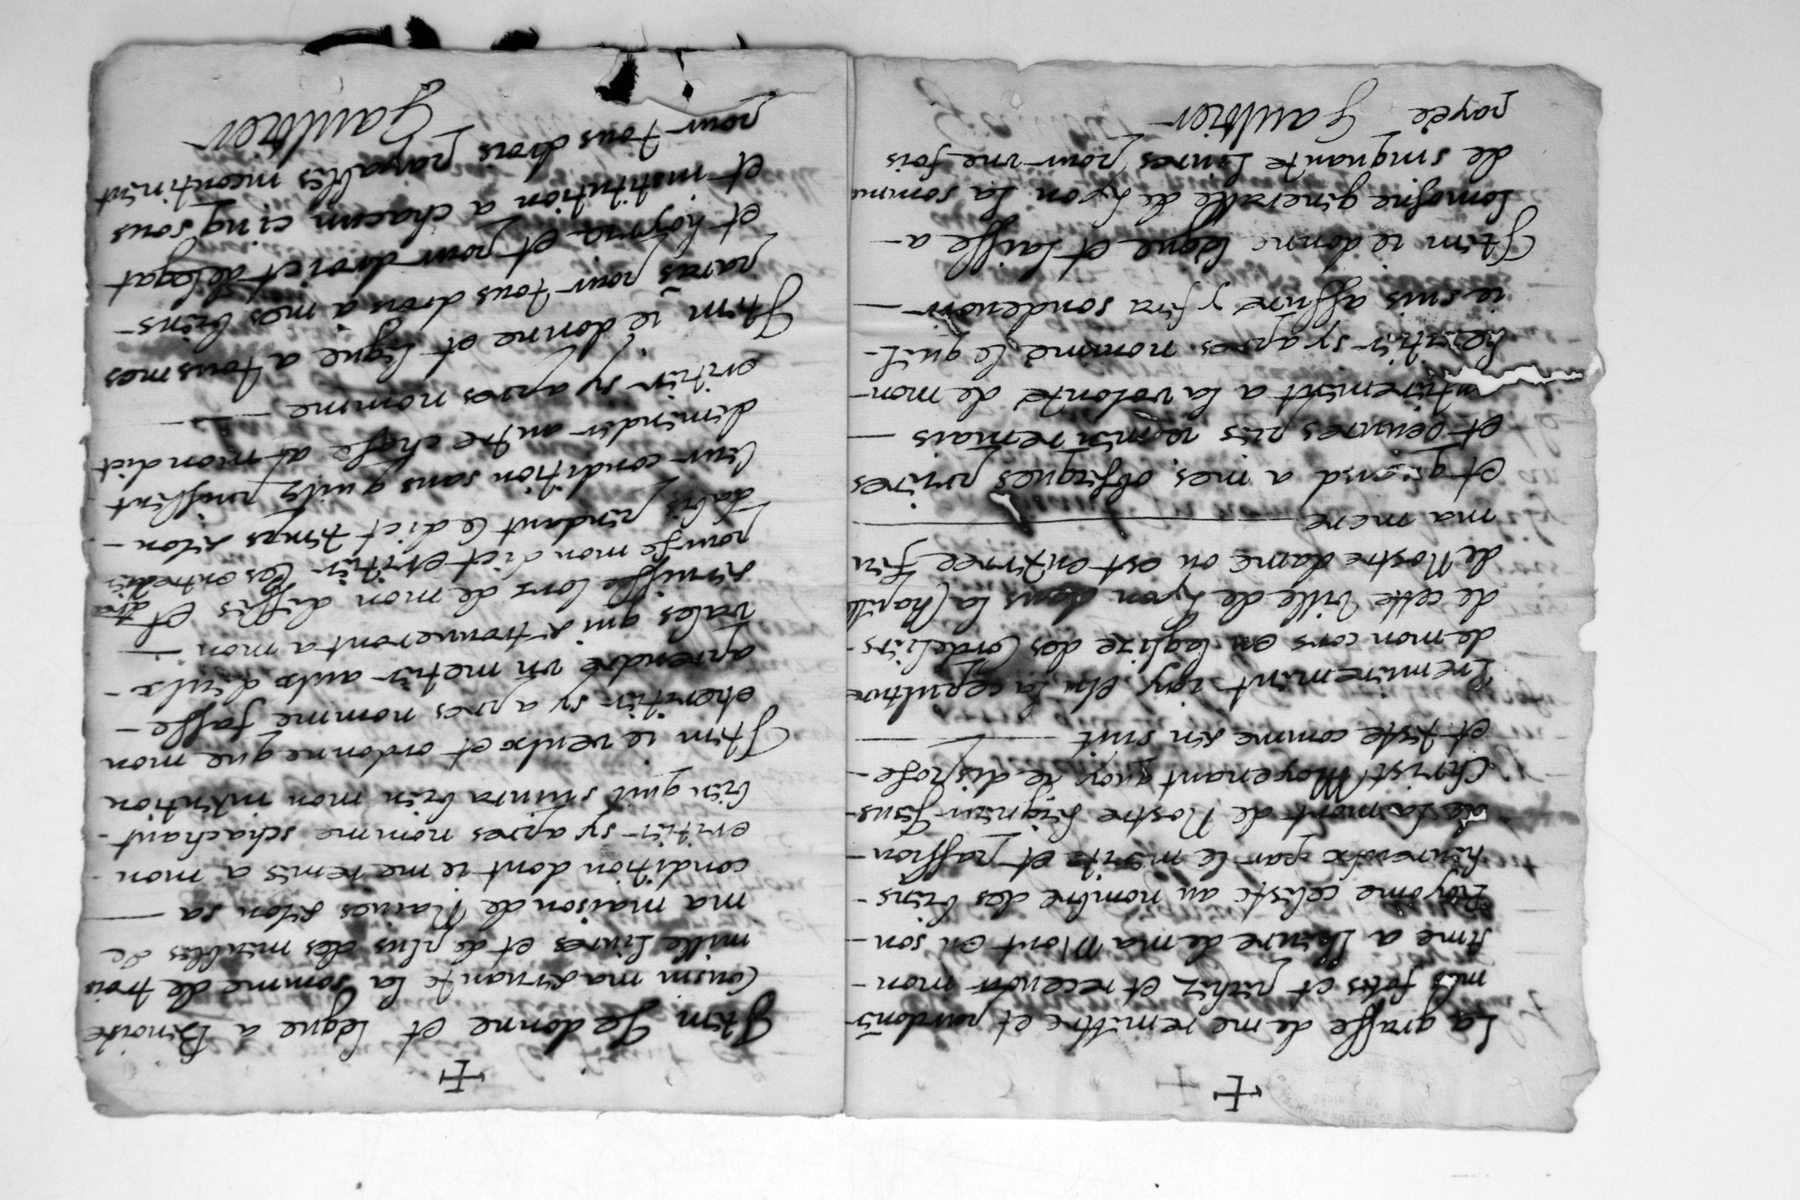 La grasse de me remettre et pardoner
mes fotes et pechez et recevoir mon
Ame a Lheure de ma Mort en son
Royome celeste au nombre des biens
heureulx par le merite et passion
de la mort de Nostre seigneur Jesus
Christ Moyenant quoy ie dispose
et teste comme sen suit
Premierement iay elu la cepulture
de mon cors en leglize des Cordeliers
de cette Ville de Lyon dans la Chapelle
de Nostre dame ou est enterree feu
ma mere
et quand a mes obseques prieres
et oeuvres pies ie men remais
entierement a la volonte de mon
heritier sy apres nomme le quel
ie suis assure y fera son devoir
Item ie donne legue et laisse a
Lomosne generalle de Lyon la somme
de sinquante Livres pour une fois
payée Gaultier
Item Je donne et legue a Benoiste
Cousin ma servante la somme de trois
mille livres et de plus des meubles de
ma maison de selon sa
condition dont ie me remes a mon
eritier sy apres nomme schachant
bien quil suivra bien mon intention
Item ie veulx et ordonne que mon
eheritier sy apres nomme fasse
aprendre un metier aulx deulx
vales qui se trouveront a mon
servisse lors de mon desses et
pourse mon dict eritier les entretiendra
dabis pendant le dict temps selon
leur condition sans quilz puissent
demender autre chose a mondict
eritier sy apres nomme
Item ie donne et legue a tous mes
parans pour tous drois a mes biens
et hoyrie et pour droict de legat
et institution a chacun cinq sous
pour tous drois payables incontinent
Gaultier